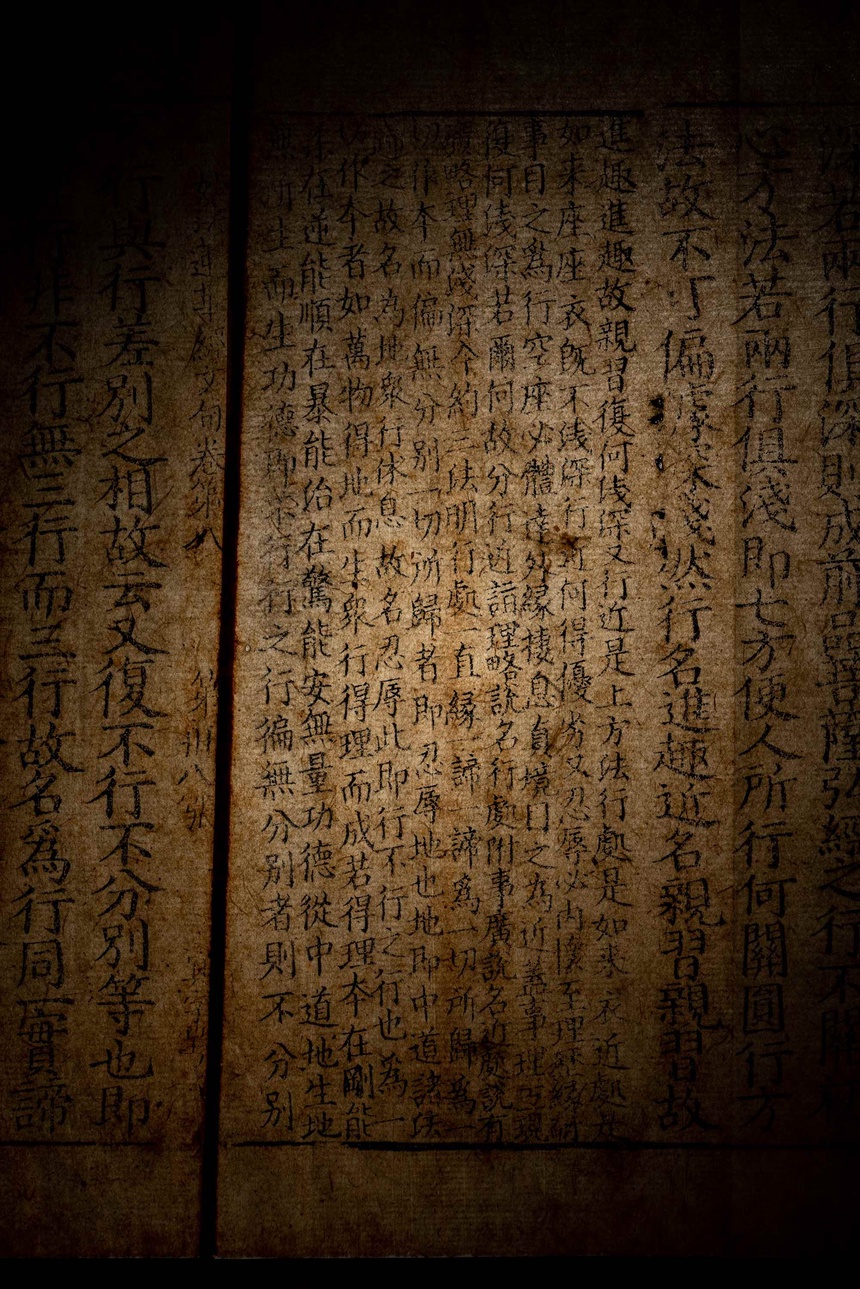 深若兩行俱深則成前品菩薩弘經之行不關
心方法若兩行俱淺即七方便人所行何關圓行方
法故不可偏據深淺然行名進趣近名親習親習故
進趣進趣故親習復何淺深又行近是上方法行處是如來衣近處是
如來座座衣既不淺深行近何得優劣又忍辱必內懷至理
事曰之為行空座必體達外緣棲息真境曰之為近蓋事理互現
復何淺深若爾何故分行近語理略說名行處附事廣說名近處說有
廣略理無淺深今約三法明行處一直緣一諦一諦為一切所歸為一
切作本而偏無分別一切所歸者即忍辱地也地即中道諸法
之故名為地眾行休息故名忍辱此即行不行之行也為一
切作本者如萬物得地而生眾行得理而成若得理本在剛能
柔在逆能順在暴能治在驚能安無量功德從中道地生地
無所生而生功德即不行行之行徧無分別者則不分別
卷第八 第卅八張
行與行差別之相故云又復不行不分別等也即
非不行無三行而三行故名為行同一實諦